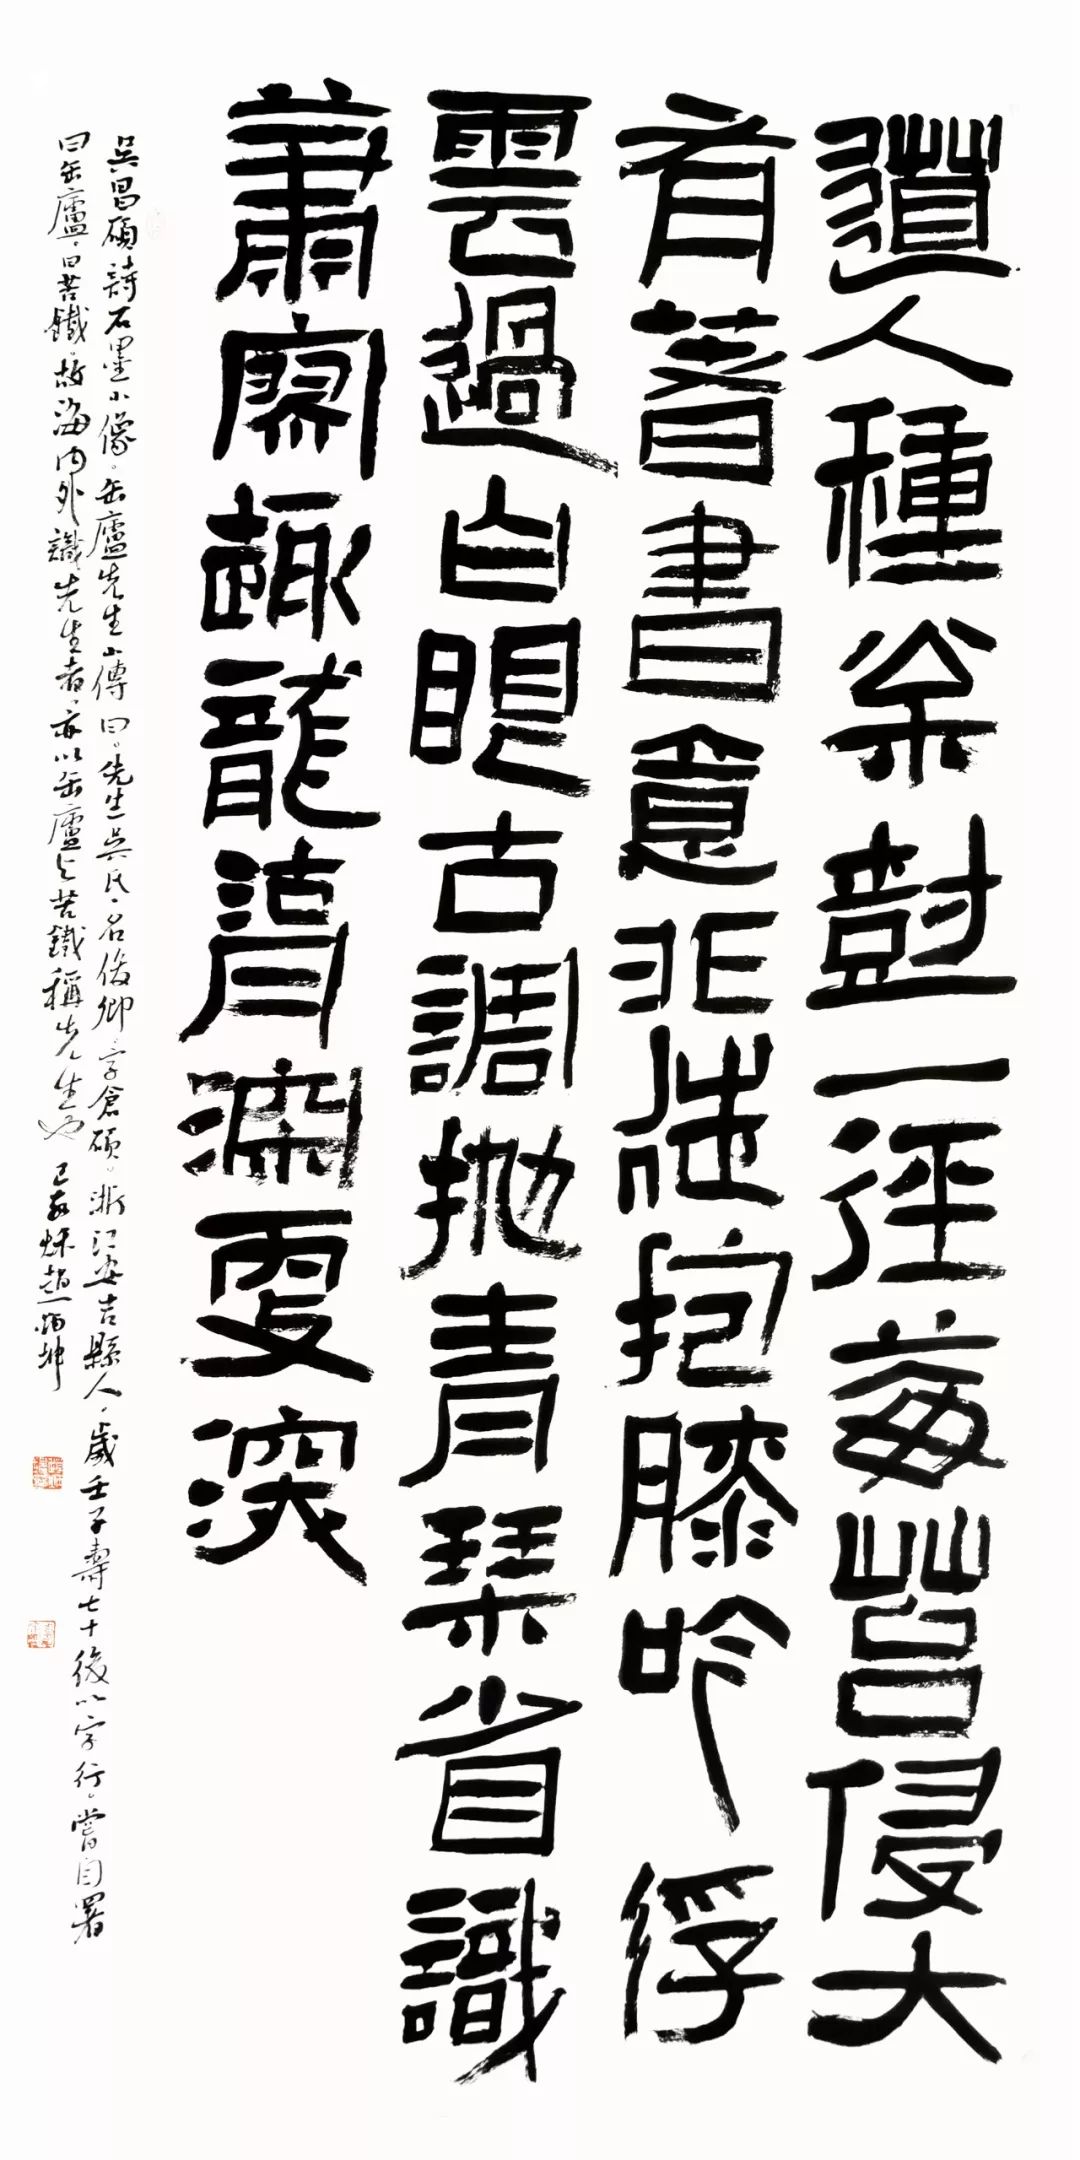 道人種枩尌一徑莓苔侵大
有著書意非徒抱膝吟浮
雲過白眼古調拋青琴省識
蕭寥趣龍淵更深
吳昌碩詩石墨小像。缶廬先生小傳曰。先生吳氏、名俊卿、字倉碩。浙江安吉縣人、歲壬子壽七十後以字行。嘗自署
曰缶廬、曰苦鐵、故海內外識先生者、亦以缶廬与苦鐵稱先生也 己亥秌趙坤